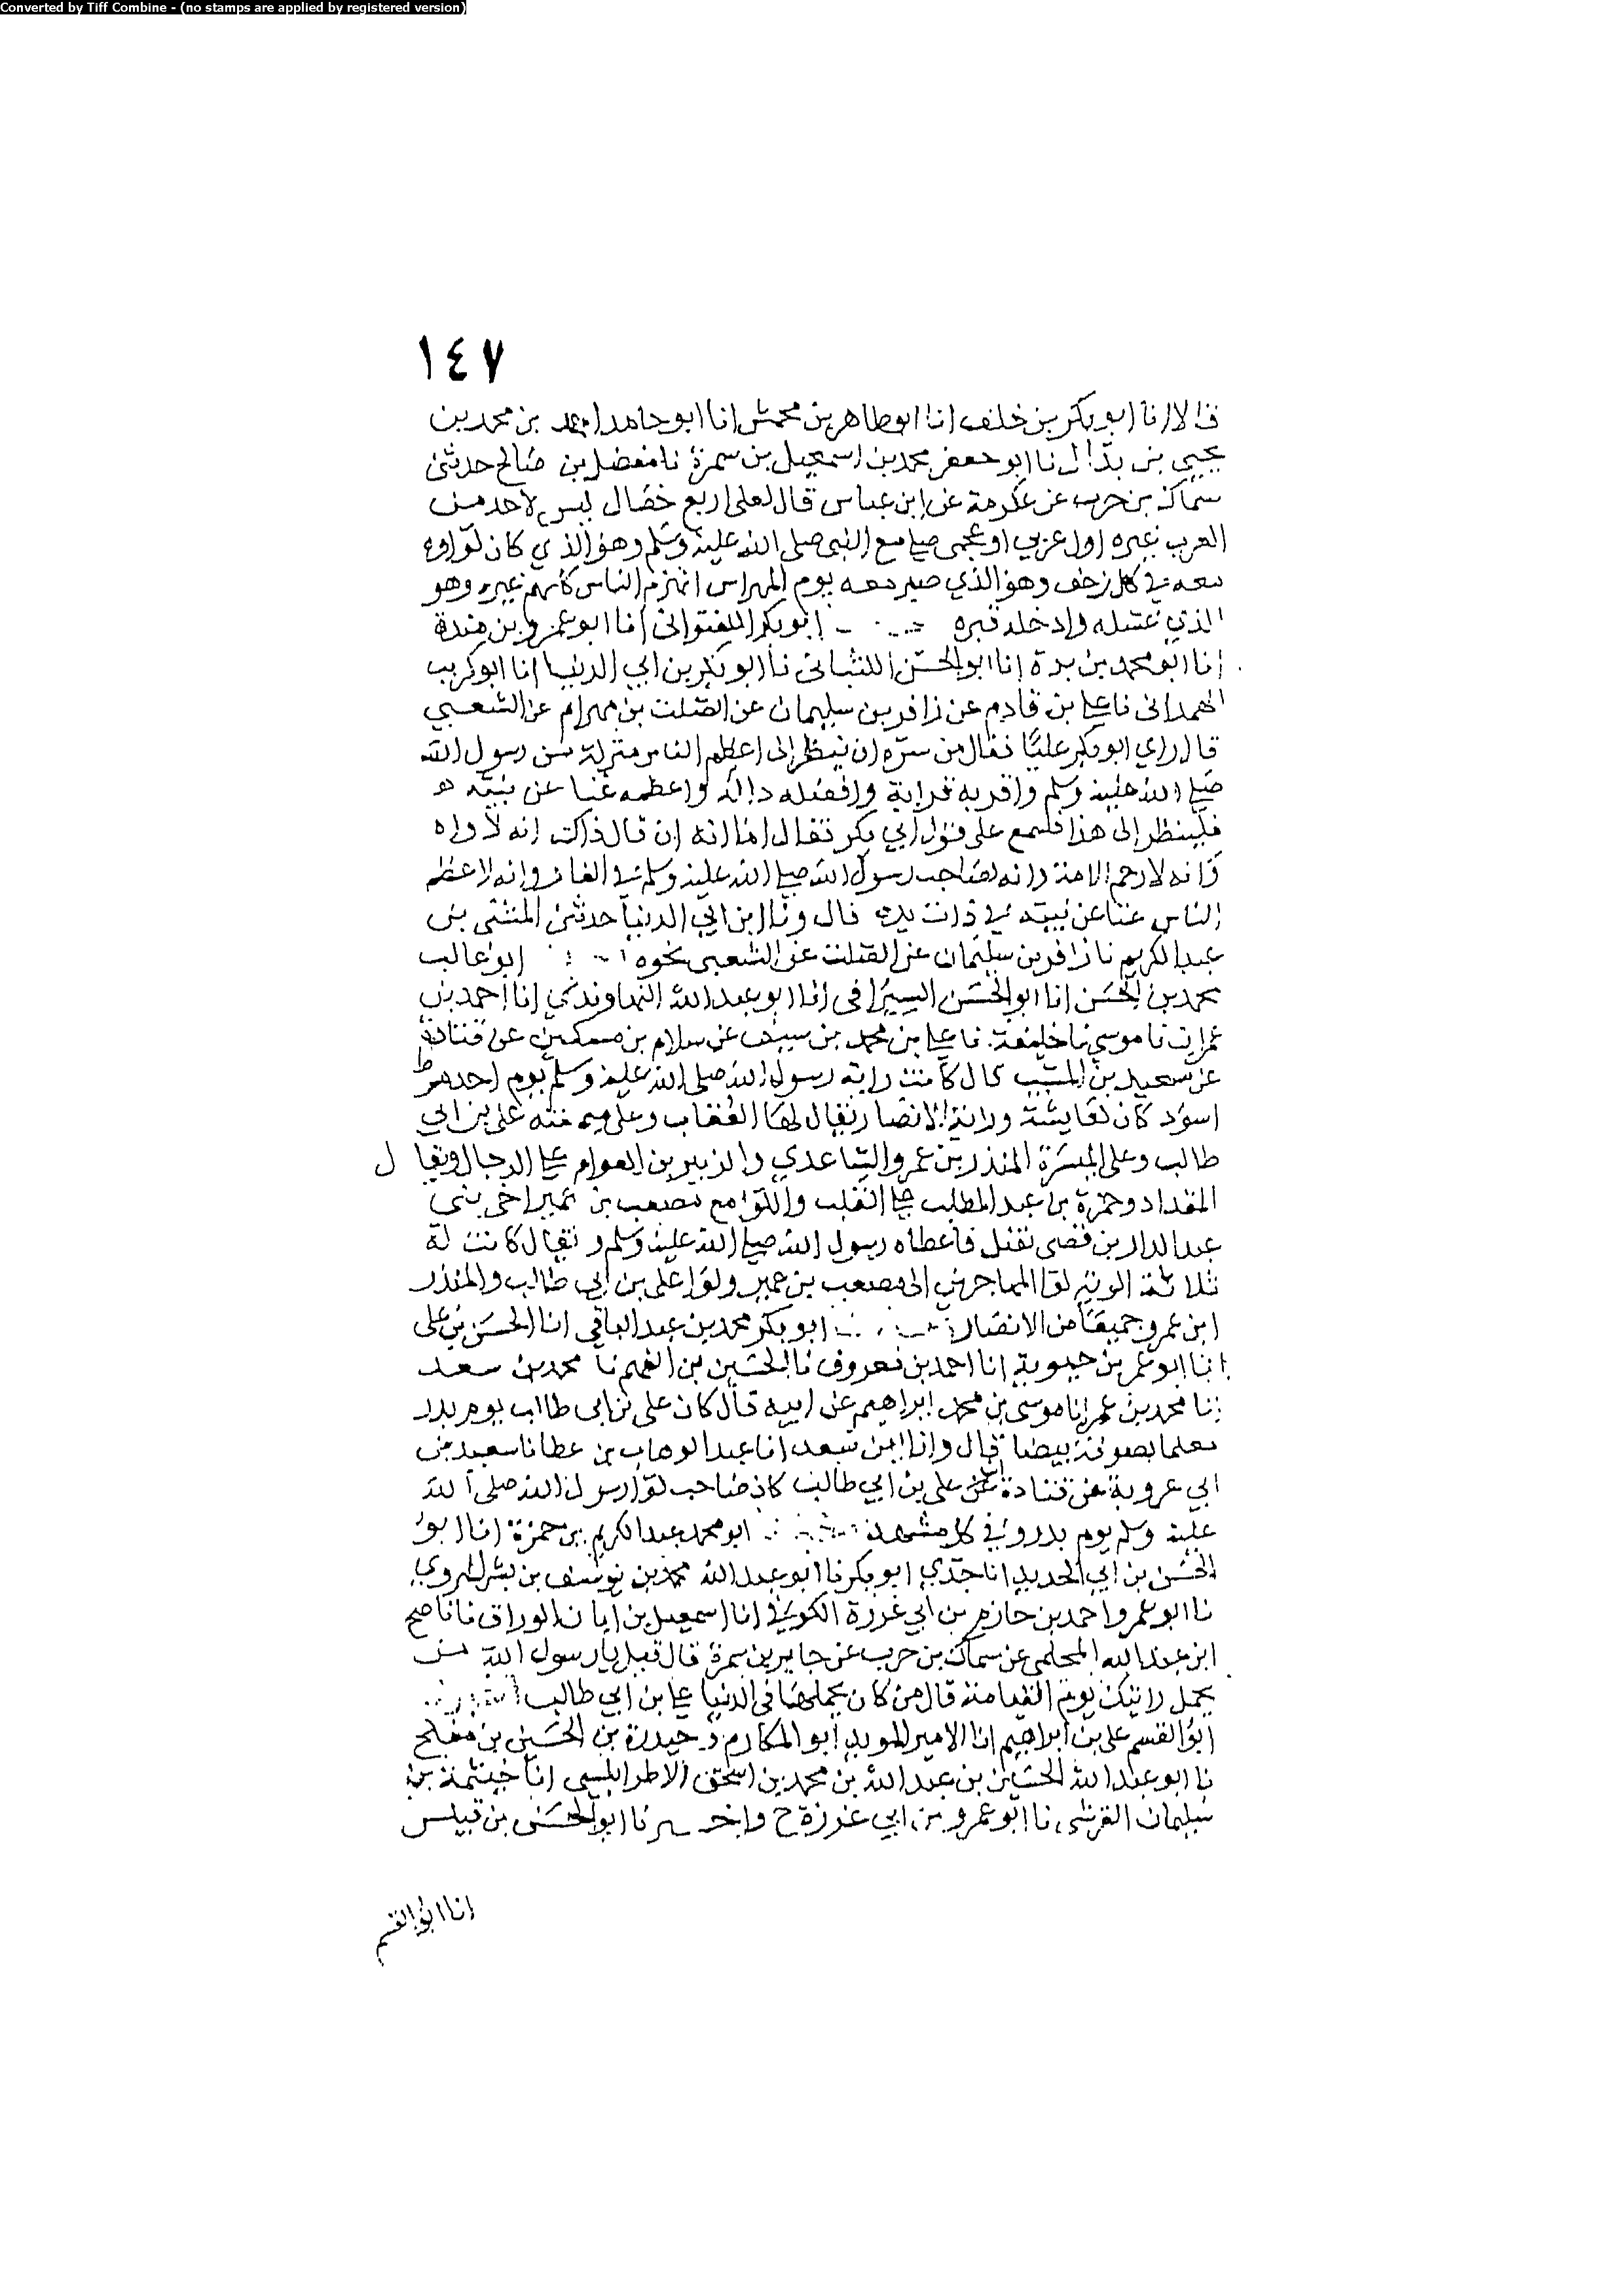 Converted by Tiff Combine - (no stamps are applied by registered version)
١٤٧
قالا انا ابو بكر بن خلف انا ابو طاهر بن محمش انا ابو حامد احمد بن محمد بن
يحيي بن بلال نا ابو جعفر محمد بن اسمعيل بن سمرة نا مفضل بن صالح حدثني
سماك بن حرب عن عكرمة عن ابن عباس قال لعلي اربع خصال ليس لاحد من
العرب غيره اول عربي او عجمي صلي مع النبي صلي الله عليه وسلم وهو الذي كان لواوه
معه في كل زحف وهو الذي صبر معه يوم المهراس انهزم الناس كلهم غيره وهو
الذي غسله وادخله قبره ابو بكر اللفتواني انا ابو عمرو بن مندة
انا ابو محمد بن يوة انا ابو الحسن اللنباني نا ابو بكر بن ابي الدنيا انا ابو كريب
الهمداني نا علي بن قادم عن زافر بن سليمان عن الصلت بن بهرام عن الشعبي
قال راي ابو بكر عليا فقال من سره ان ينظر الى اعظم الناس منزلة من رسول الله
صلي الله عليه وسلم واقربه قرابة وافضله دالة واعظمه غنا عن نبيه
فلينظر الى هذا فسمع علي قول ابي بكر فقال اما انه ان قال ذاك انه لاواه
وانه لارحم الامة وانه لصاحب رسول الله صلي الله عليه وسلم في الغار وانه لاعظم
الناس غنا عن نبيه في ذات يده قال ونا ابن ابي الدنيا حدثني المثني بن
عبد الكريم نا زافر بن سليمان عن الصلت عن الشعبي نحوه ابو غالب
محمد بن الحسن انا ابو الحسن السيرافي انا ابو عبد الله النهاوندي انا احمد بن
عمران نا موسي نا خليفة نا علي بن محمد بن سيف عن سلام بن مسكين عن قتادة
عن سعيد بن المسيب قال كانت راية رسول الله صلي الله عليه وسلم يوم احد مرط
اسود كان لعايشة وراية الانصار يقال لها العقاب وعلي ميمنته علي بن ابي
طالب وعلى الميسرة المنذر بن عمرو الساعدي والزبير بن العوام علي الرجال ويقال
المقداد وحمزة بن عبد المطلب علي القلب واللوا مع مصعب بن عمير اخي بني
عبد الدار بن قصي فقتل فاعطاه رسول الله صلي الله عليه وسلم ويقال كانت له
ثلاثة الوية لوا المهاجرين الى مصعب بن عمير ولوا علي بن ابي طالب والمنذر
ابن عمرو جميعا من الانصار ابو بكر محمد بن عبد الباقي انا الحسن بن علي
انا ابو عمر بن حيوية انا احمد بن معروف نا الحسين بن الفهم نا محمد بن سعد
انا محمد بن عمر نا موسى بن محمد ابراهيم عن ابيه قال كان علي بن ابي طالب يوم بدر
معلما بصوفة بيضا قال وانا ابن سعد انا عبد الوهاب بن عطا نا سعيد بن
ابي عروبة عن قتادة علي بن ابي طالب كان صاحب لوا رسول الله صلي الله
عليه وسلم يوم بدر وفي كل مشهد ابو محمد عبد الكريم بن حمزة انا ابو
الحسن بن ابي الحديد انا جدي ابو بكر نا ابو عبد الله محمد بن يوسف بن بشر الهروي
نا ابو عمرو احمد بن حازم بن ابي غرزة الكوفي انا اسمعيل بن ابان الوراق نا ناصح
ابن عبد الله المحلمي عن سماك بن حرب عن جابر بن سمرة قال قيل يا رسول الله من
يحمل رايتك يوم القيامة قال من كان يحملها في الدنيا علي بن ابي طالب
ابو القسم علي بن ابراهيم انا الامير المويد ابو المكارم حيدرة بن الحسين بن مفلح
نا ابو عبد الله الحسين بن عبد الله بن محمد بن اسحق الاطرابلسي انا خيثمة بن
سليمان القرشي نا ابو عمرو بن ابي غرزة ح واخبرنا ابو الحسن بن قبيس
انا ابو القسم